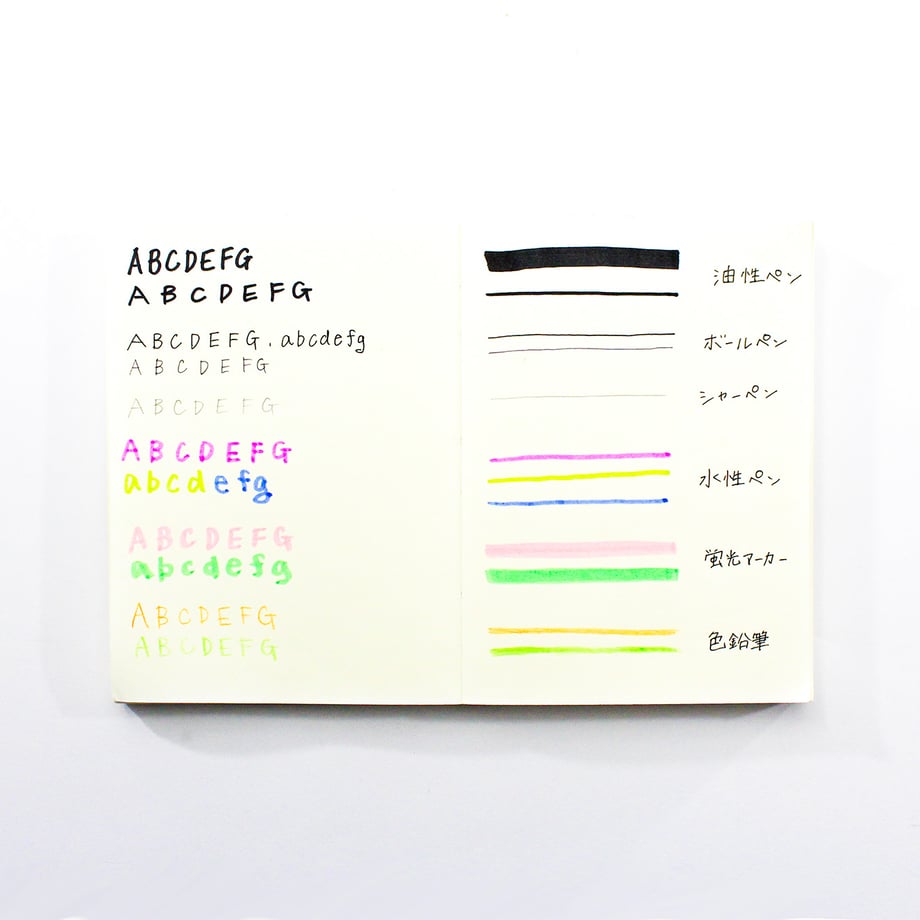 ABCDEFG
ABCDEFG
ABCDEFG.abcdefg
ABCDEFG
ABCDEFG
ABCDEFG
abcdefg
ABCDEFG
abcdefg
ABCDEFG
ABCDEFG
油性ペン
ボールペン
シャーペン
水性ペン
蛍光マーカー
色鉛筆